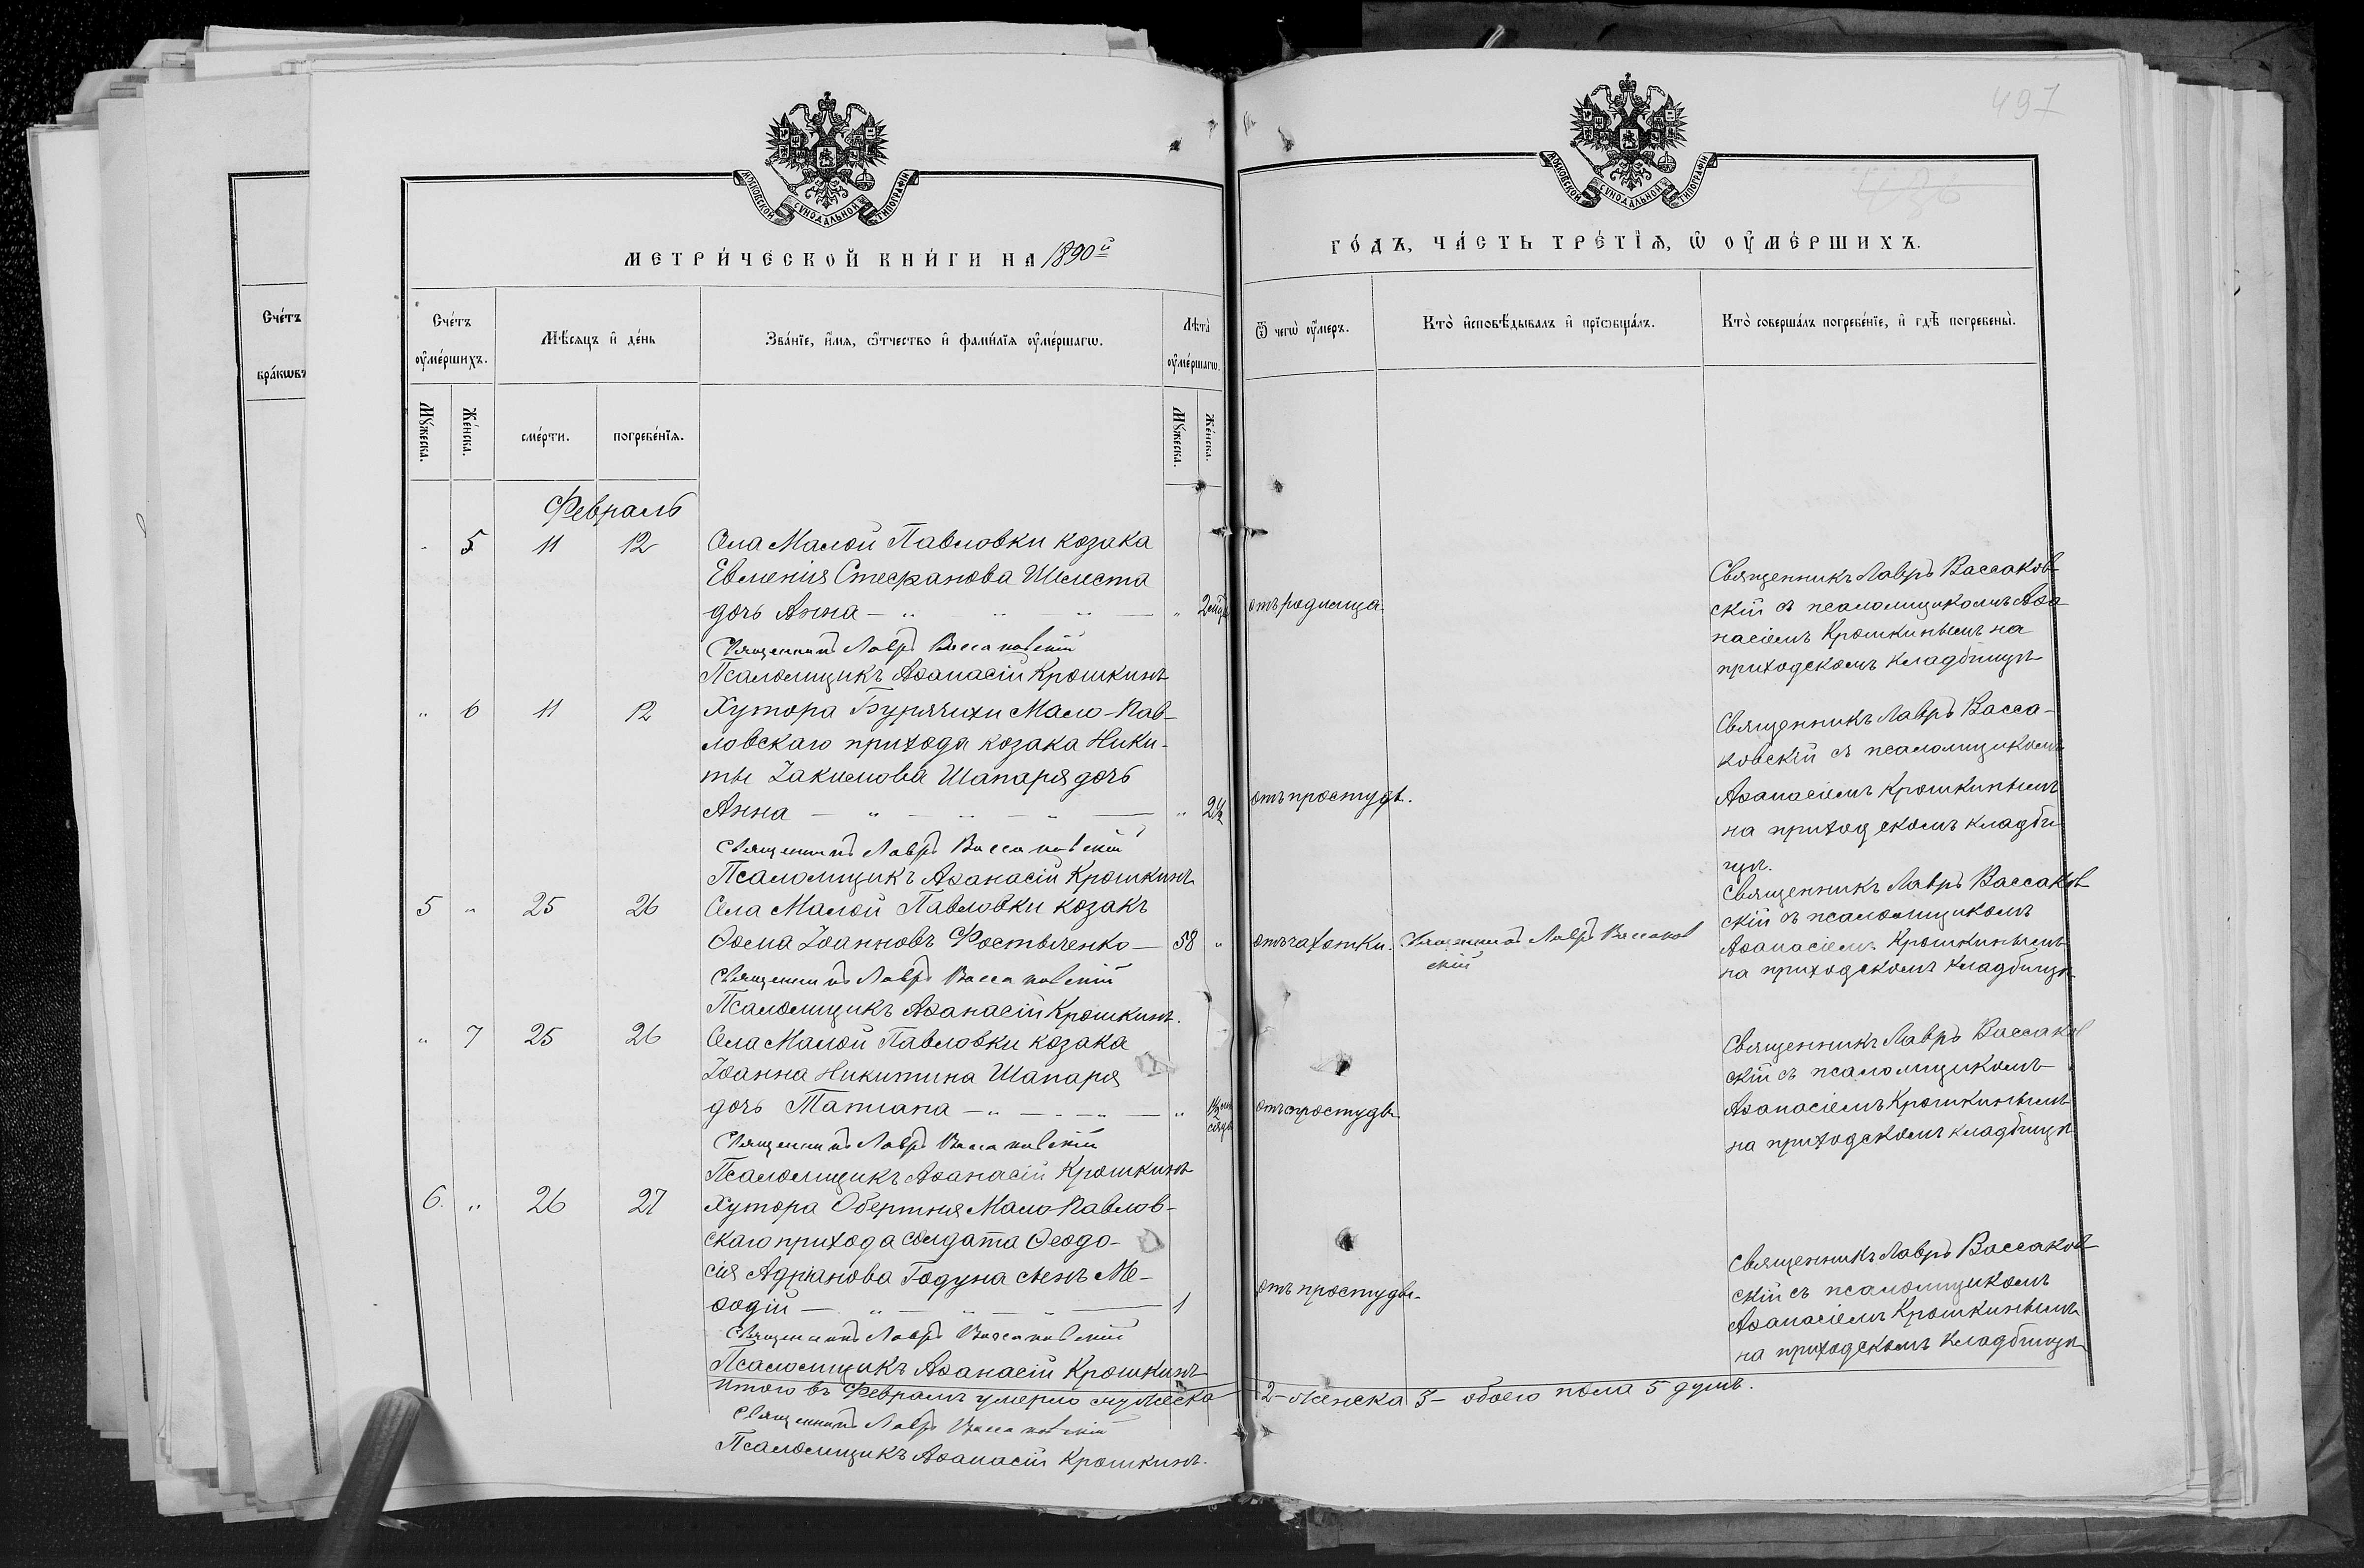 497
МОСКОВСКОЙ СѴНОДАЛЬНОЙ ТИПОГРАФІИ
МОСКОВСКОЙ СѴНОДАЛЬНОЙ ТИПОГРАФІИ
МЕТРИ́ЧЕСКОЙ КНИ́ГИ НА 1890й
ГО́ДЪ, ЧА́СТЬ ТРЕ́ТЇѦ, Ѡ ОУ҆МЕ́РШИХЪ.
Сче́тъ
бра́кѡвъ
Сче́тъ
оу҆ме́ршихъ.
Мꙋ́жеска.
Же́нска.
Мѣ́сѧцъ и҆ де́нь
сме́рти.
погребе́нїѧ.
Зва́нїе, и҆́мѧ, ѻ҆́тчество и҆ фами́лїѧ оу҆ме́ршагѡ.
Лѣта̀
оу҆ме́ршагѡ.
Мꙋ́жеска.
Же́нска.
Ѿ чегѡ̀ оу҆́меръ.
Кто̀ и҆сповѣ́дывалъ и҆ прїѡбща́лъ.
Кто̀ соверша́лъ погребе́нїе, и҆ гдѣ̀ погребены̀.
Февраль
5 11 12 Села Малой Павловки козака
Евменія Стефанова Шелеста
дочь Анна — " " " — " от родимца.
Священникъ Лавръ Вассаковскій
Псаломщикъ Аѳанасій Крошкинъ
Священникъ Лавръ Вассаков-
скій съ псаломщикомъ Аѳа
насіемъ Крошкинымъ на
приходскомъ кладбищѣ
" 6 11 12 Хутора Бурячихи Мало-Пав-
ловскаго прихода козака Ники-
ты Іакимова Шапаря дочь
Анна — " — " — " — " отъ простуды.
Священникъ Лавръ Вассаковскій
Псаломщикъ Аѳанасій Крошкинъ
Священникъ Лавръ Васса-
ковскій съ псаломщикомъ
Аѳанасіемъ Крошкинымъ
на приходскомъ кладби
щѣ.
5 " 25 26 Села Малой Павловки козакъ
Ѳома Іоанновъ Фостыченко — 58 " отъ чахотки. Священникъ Лавръ Вассаков
скій
Священникъ Лавръ Вассаковскій
Псаломщикъ Аѳанасій Крошкинъ.
Священникъ Лавръ Вассаков
скій съ псаломщикомъ
Аѳанасіемъ Крошкинымъ
на приходскомъ кладбищѣ
" 7 25 26 Села Малой Павловки козака
Іоанна Никитина Шапаря
дочь Татіана — " — " — " отъ простуды.
Священникъ Лавръ Вассаковскій
Псаломщикъ Аѳанасій Крошкинъ
Священникъ Лавръ Вассаков
скій съ псаломщикомъ
Аѳанасіемъ Крошкинымъ
на приходскомъ кладбищѣ
6. " 26 27 Хутора Обертня Мало-Павлов-
скаго прихода солдата Ѳеодо-
сія Адріанова Годуна сынъ Ме-
ѳодій — " — " — " — 1 отъ простуды.
Священникъ Лавръ Вассаковскій
Псаломщикъ Аѳанасій Крошкинъ
Священникъ Лавръ Вассаков
скій съ псаломщикомъ
Аѳанасіемъ Крошкинымъ
на приходскомъ кладбищѣ
Итого въ Февралѣ умерло мужеска 2 – женска 3 – обоего пола 5 душъ.
Священникъ Лавръ Вассаковскій
Псаломщикъ Аѳанасій Крошкинъ.